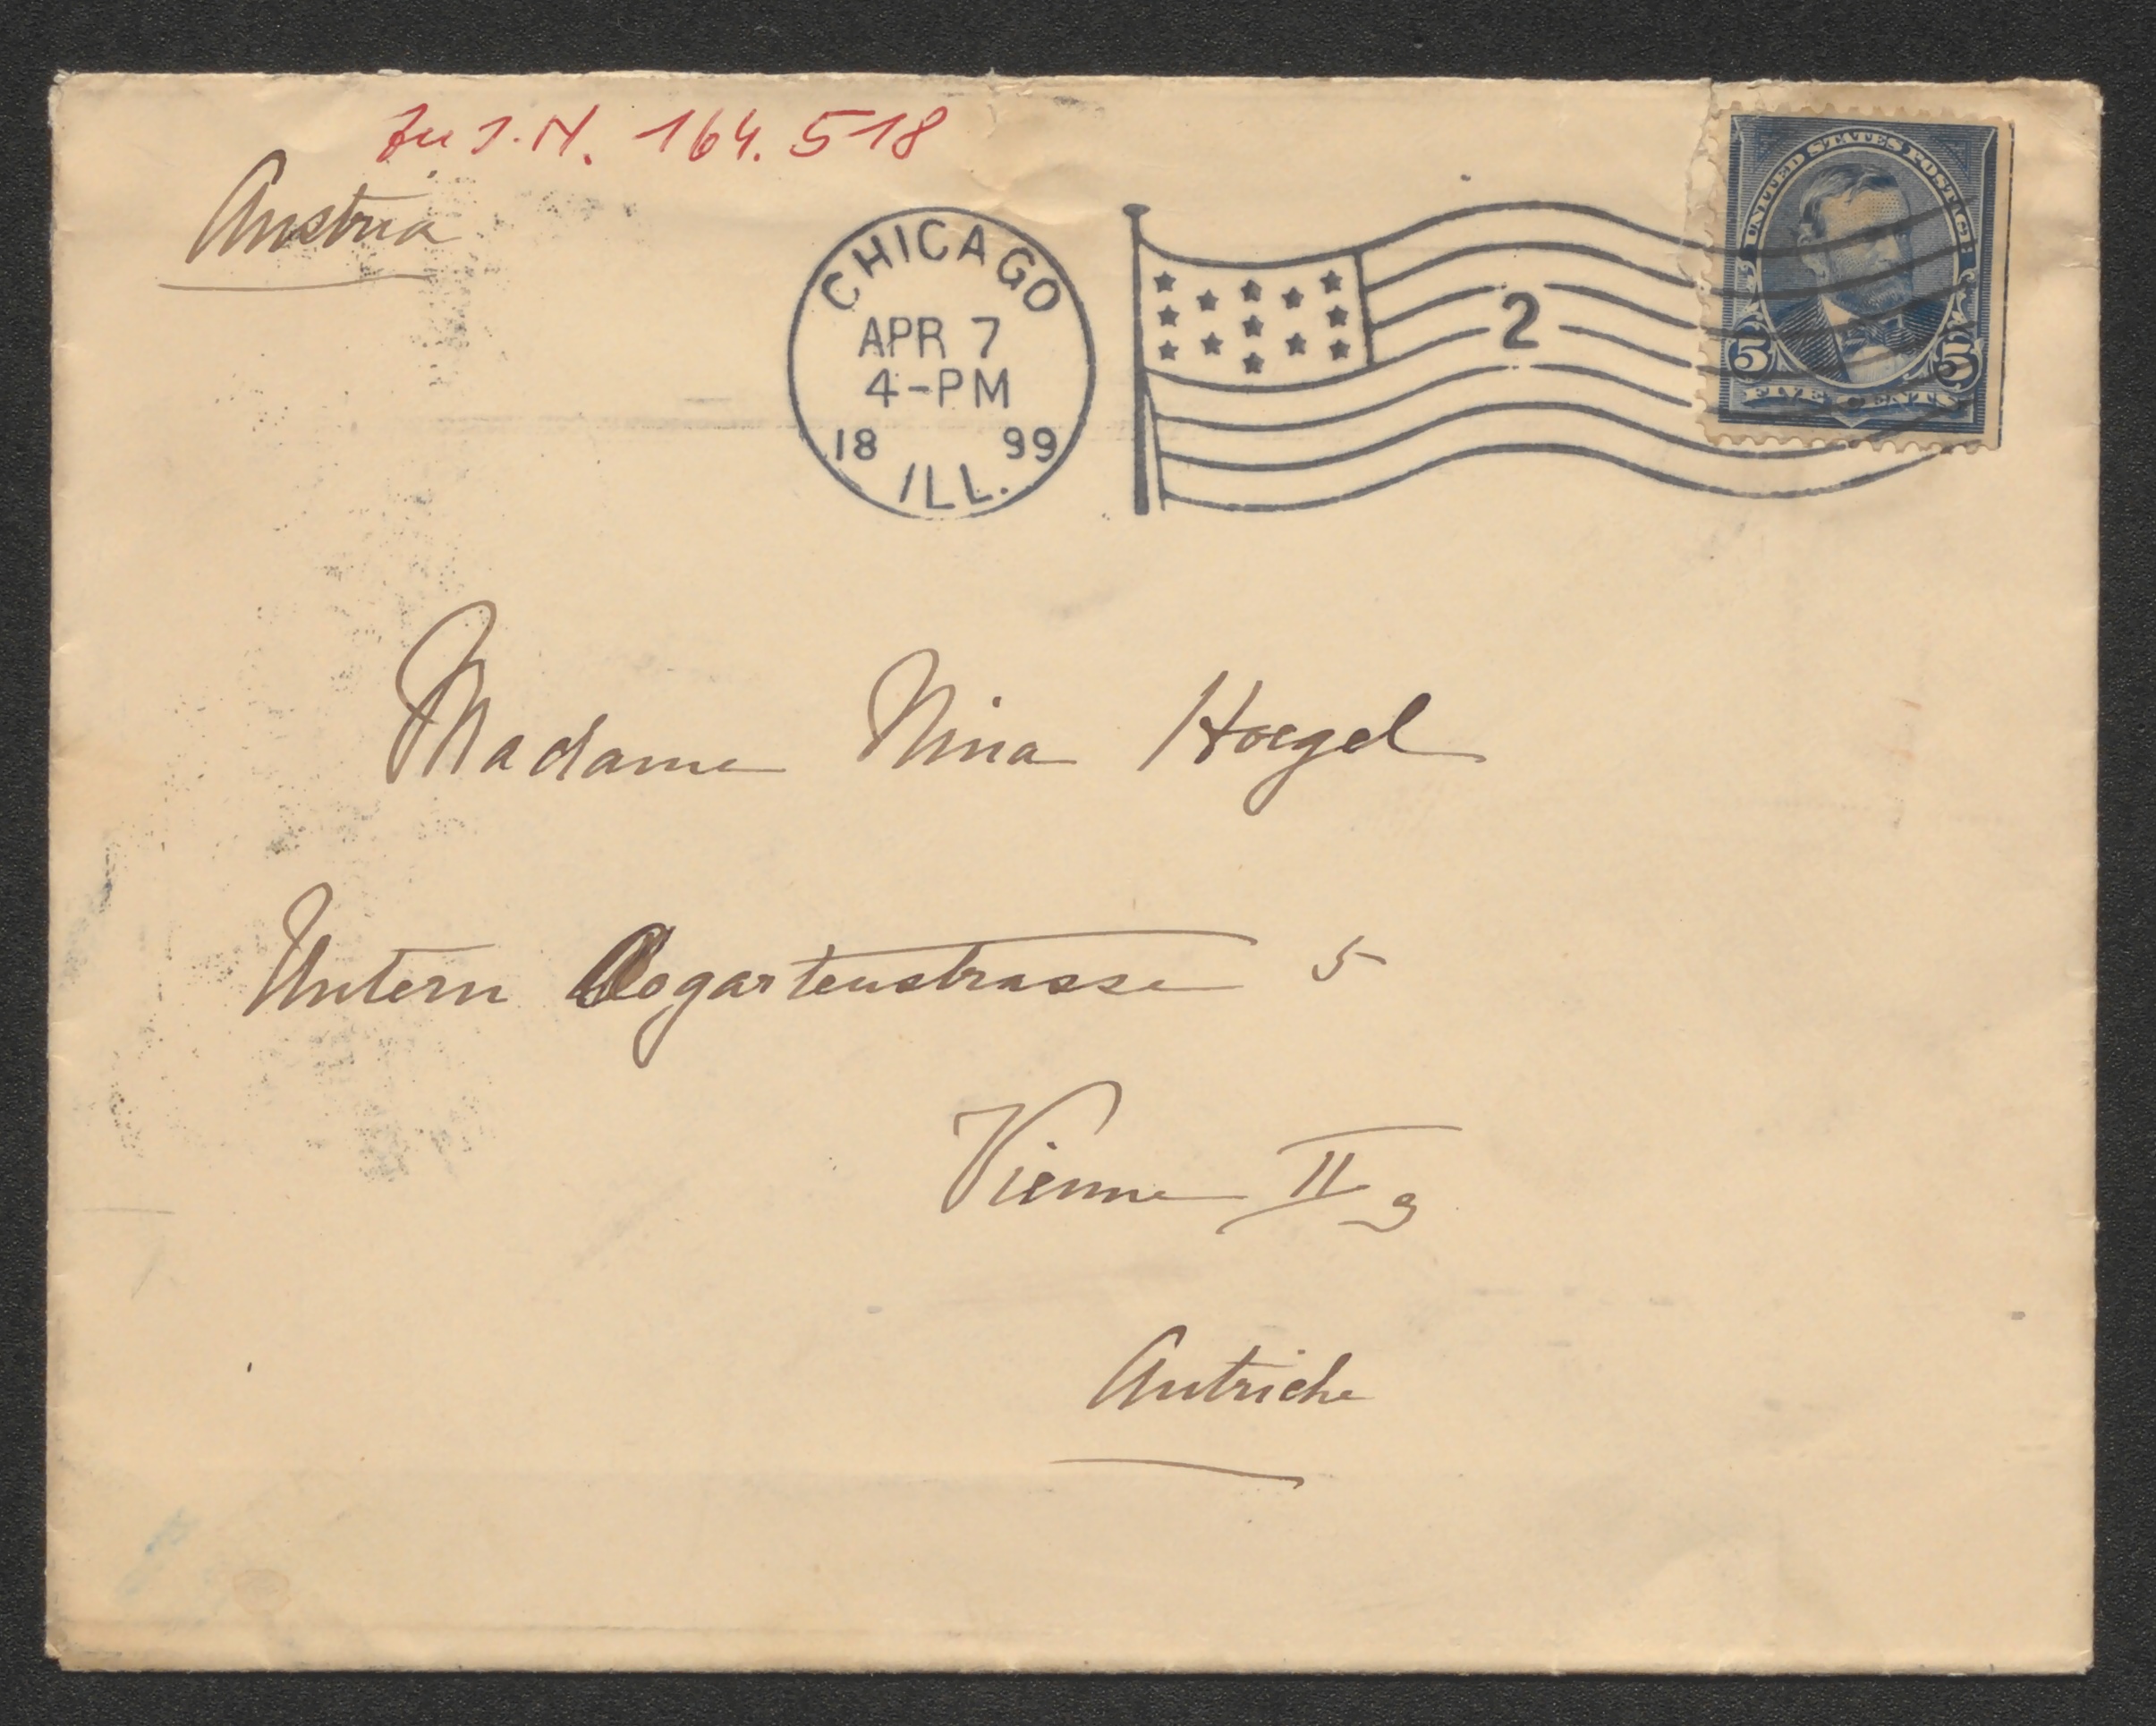 Zu I.N. 164.518
Austria
CHICAGO
APR 7
4-PM
18 99
ILL.
2
UNITED STATES POSTAGE
5 5
FIVE CENTS
Madame Nina Hoegel
Untern Augartenstrasse 5
Vienne II 3
Autriche